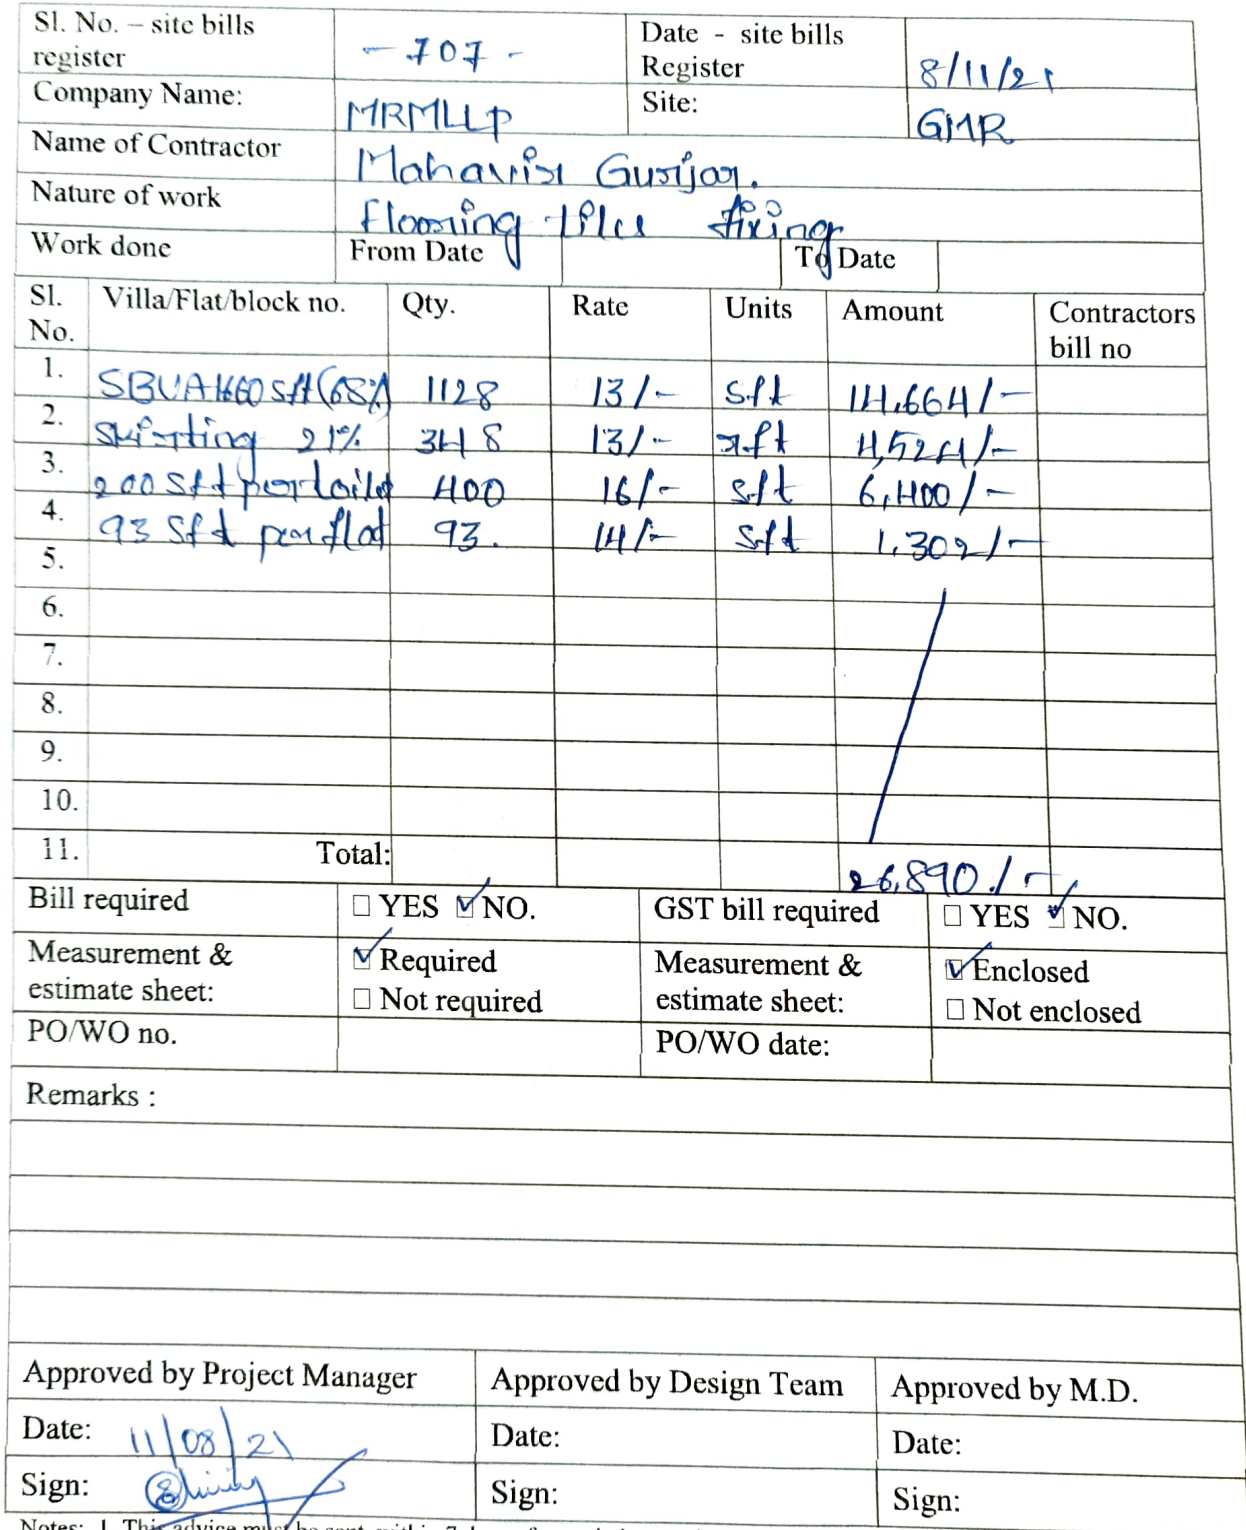 Sl. No. – site bills register - 707 - Date - site bills Register 8/11/21
Company Name: MRMLLP Site: GMR
Name of Contractor Mahavir Gurjar.
Nature of work Flooring tiles fixing
Work done From Date To Date
Sl. No. Villa/Flat/block no. Qty. Rate Units Amount Contractors bill no
1. SBUA 1660 sft (68%) 1128 13/- sft 14,664/-
2. Skirting 21% 348 13/- rft 4,524/-
3. 200 sft per toilet 400 16/- sft 6,400/-
4. 93 sft per flat 93. 14/- sft 1,302/-
5.
6.
7.
8.
9.
10.
11. Total: 26,890./-
Bill required ☐ YES ☑ NO. GST bill required ☐ YES ☑ NO.
Measurement & estimate sheet: ☑ Required ☐ Not required Measurement & estimate sheet: ☑ Enclosed ☐ Not enclosed
PO/WO no. PO/WO date:
Remarks :
Approved by Project Manager Approved by Design Team Approved by M.D.
Date: 11/08/21 Date: Date:
Sign: Sign: Sign:
Notes: 1. This advice must be sent within 7 days